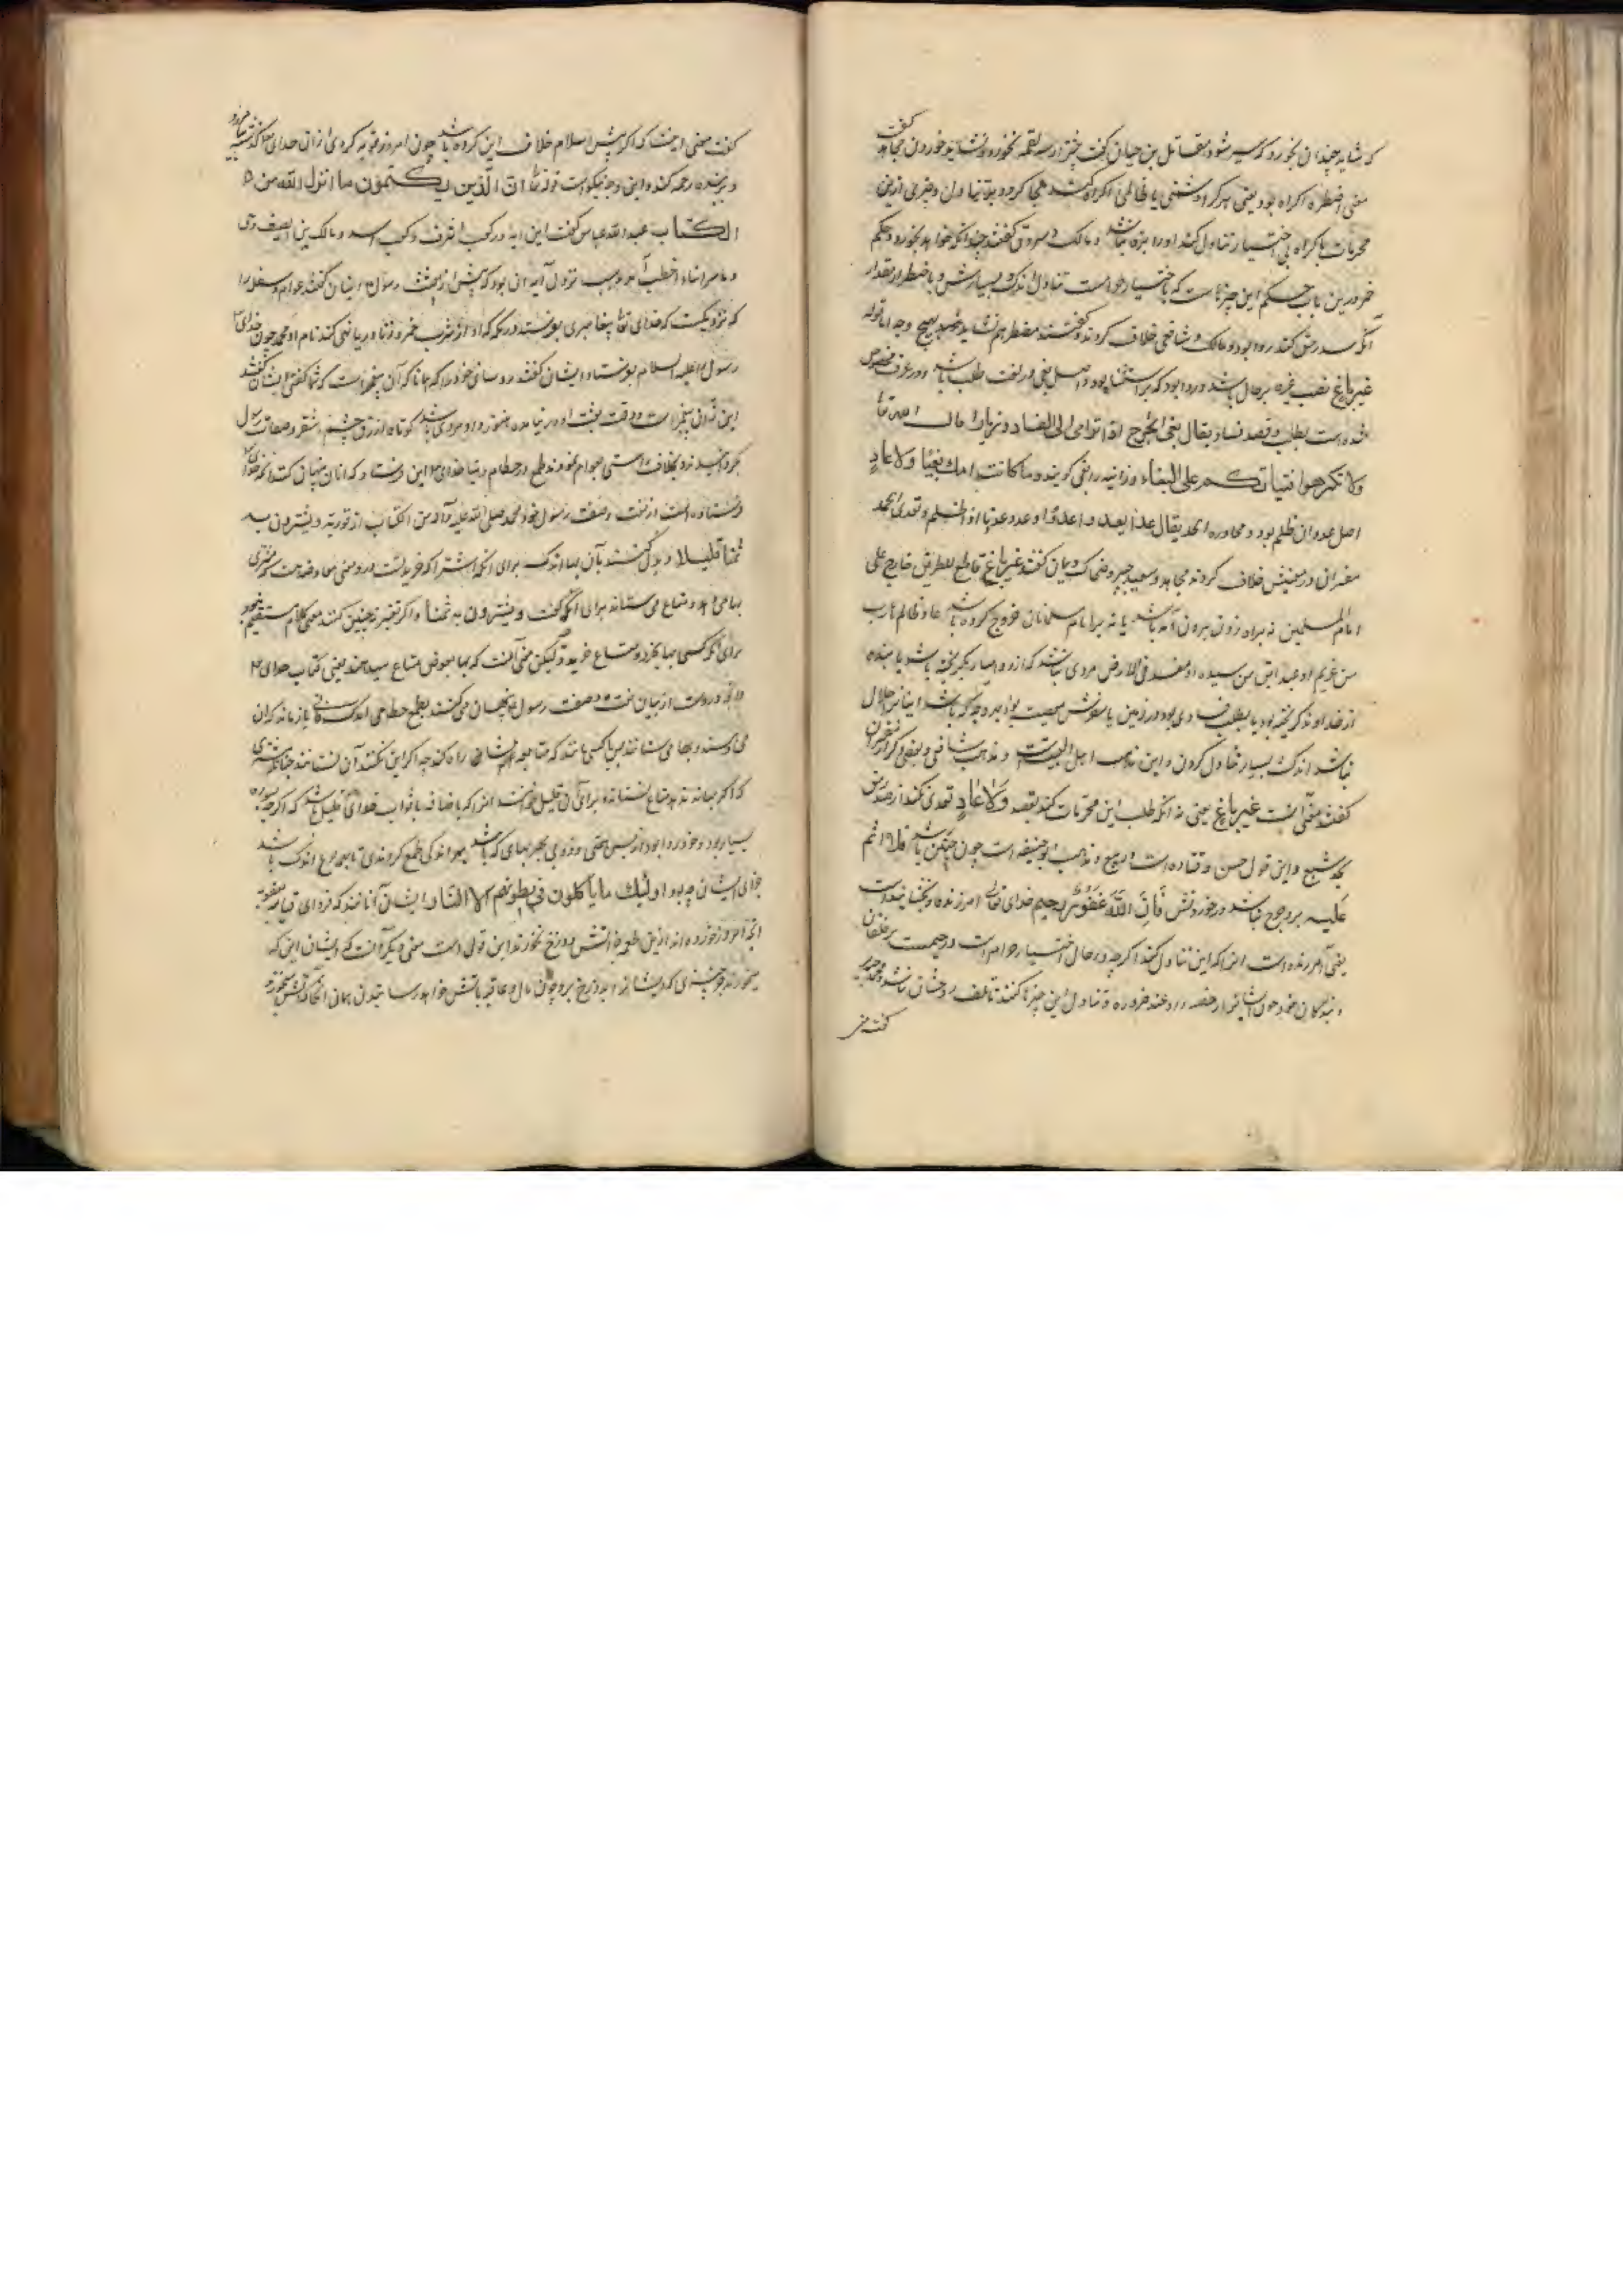 که شاید چندان بخورد که سیر شود مقاتل بن حیان گفت بیشتر از سه لقمه نخورد و نشاید خوردن مجاهد گفت
معنی اضطره اکراه بود یعنی هر که او را دشمنی یا ظالمی اکراه کند ملجا کرده بر تناول چیزی ازین
محرمات باکراه بی اختیار تناول کند او را بزه نباشد و مالک و مسروق گفتند چندانکه خواهد بخورد و حکم
خمر درین باب حکم این چیزهاست که باختیار حرامست تناول اندک و بسیارش و باضطرار بمقدار
آنکه سد رمق کند روا بود و مالک و شافعی خلاف کردند و گفتند مضطر هم نشاید بهیچ وجه اما قوله
غیر باغ نصب غیر بر حال باشد و روا بود که بر استثنا بود و اصل بغی در لغت طلب باشد و در عرف مخصوص
شده است بطلب و قصد فساد یقال بغی الجرح اذا ترامی الی الفساد و زنا را قال الله تعالی
ولا تکرهوا فتیاتکم علی البغاء و زانیه را بغی گویند و ما کانت امک بغیا ولا عاد
اصل عدوان ظلم بود و مجاوزه الحد یقال عدا یعدو عدوا و عدوانا اذا ظلم و تعدی الحد
مفسران در معنیش خلاف کردند مجاهد و سعید جبیر و ضحاک گفتند غیر باغ قاطع للطریق خارج علی
امام المسلمین نه براه زدن بیرون آمده باشد یا نه بر امام مسلمانان خروج کرده باشد عاد ظالم هارب
من غریم او عبد ابق من سیده او مفسد فی الارض مردی نباشد که از وام دار بگریخته باشد یا بنده
از خداوند گریخته بود یا بطلب فسادی بود در زمین یا سفرش معصیت بود بهر وجه که باشد اینان را حلال
نباشد اندک و بسیار تناول کردن و این مذهب اهل البیت است و مذهب شافعی و بعضی دگر از مفسران
گفتند معنی آنست غیر باغ یعنی نه آنکه طلب این محرمات کند بقصد ولا عاد تعدی نکند از سد رمق
بحد شبع و این قول حسن و قتاده است و ربیع و مذهب ابوحنیفه است چون چنین باشد فلا اثم
علیه بر او حرج نباشد در خوردنش فان الله غفور رحیم خدای تعالی آمرزنده و بخشاینده است
یعنی آمرزنده است آنرا که این تناول کند اگر چه در حال اختیار حرام است و رحیمست بر خلقان
و بندگان خود چون ایشانرا رخصه داد عند ضروره تناول این چیزها کنند تا تلف روحشان نباشد و محمد جریر
گفت معنی
گفت معنی اینست که اگر پیش از اسلام خلاف این کرده باشد چون امروز توبه کردی از آن خدای تعالی گذشته بیامرزد
و بر بنده رحمه کند و این وجه نیکوست قوله تعالی ان الذین یکتمون ما انزل الله من
الکتاب عبدالله عباس گفت این آیه در کعب اشرف و کعب اسد و مالک بن الصیف و حی
اخطب آمد و سبب نزول آیه آن بود که پیش از بعثت رسول ایشان گفتند عوام و سفله را
که نزدیکست که خدای تعالی پیغامبری بفرستد در مکه که او از شرب خمر و زنا و ربا نهی کند نام او محمد چون خدای
رسول را علیه السلام بفرستاد ایشان گفتند روسای خود را که همانا که آن پیغمبر است که شما گفتی ایشان گفتند
این نه آن پیغمبر است و وقت بعثت او در نیامده هنوز و او مردی باشد کوتاه ازرق چشم اشقر و صفات رسول
بگردانیدند و بخلاف راستی بعوام نمودند طمع در حطام دنیا خدای این آیه فرستاد که آنان که پنهان کنند آنچه خدای
فرستاده است از نعت و صفت رسول خود محمد صلی الله علیه و آله من الکتاب از توریة و یشترون به
ثمنا قلیلا و بدل کنند بآن بهای اندک برای آنکه اشترا که خریدنست درو معنی معاوضه است که مشتری
بها می دهد و متاع می ستاند برای آنکه گفت و یشترون به ثمنا و اگر تفسیر نه چنین کنند معنی کلام مستقیم نبود
برای آنکه کسی بها نخرد و متاع خرید و لیکن معنی آنست که بها بعوض متاع میدهند یعنی کتاب خدای
و آنچه دروست از بیان نعت و صفت رسول پنهان می کنند بطمع حطامی اندک
می فروشند و بها می ستانند
که اگر بها نه بدهد متاع نستاند و برای آن قلیل خواند آنرا که باضافه با ثواب خدای قلیل باشد که اگر چه
بسیار بود و خود روا بود
جزای ایشان چه بود اولئک ما یاکلون فی بطونهم الا النار ایشان آنانند که فردای قیامت بعقوبت
آنچه امروز خورده اند ازین طعمه جز آتش دوزخ نخورند این قولی است معنی دیگر آنست که ایشان این که
میخورند چیزی که ایشانرا بدوزخ برد چون مال و عاقبه بآتش خواهد رسانیدن همان انگار که آتش میخورند